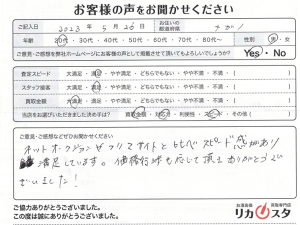 お客様の声をお聞かせください
ご記入日 2023年5月26日 お住いの都道府県
年齢 20代・30代・40代・50代・60代・70代・80代〜 性別 男・女
ご意見・ご感想を弊社ホームページにお客様の声として掲載させて頂いてもよろしいでしょうか? Yes・No
査定スピード 大満足・満足・やや満足・どちらでもない・やや不満・不満・( )
スタッフ接客 大満足・満足・やや満足・どちらでもない・やや不満・不満・( )
買取金額 大満足・満足・やや満足・どちらでもない・やや不満・不満・( )
当店をお選びいただきました決め手は? 買取金額・対応力・利便性・スピード・その他( )
ご意見・ご感想などぜひお聞かせください
ネットオークションやフリマサイトとくらべスピード感があり
満足しています。価格交渉も応じて頂きありがとうござ
いました!
ご協力ありがとうございました。
この度は誠にありがとうございました。
お酒買取 買取専門店
リカスタ